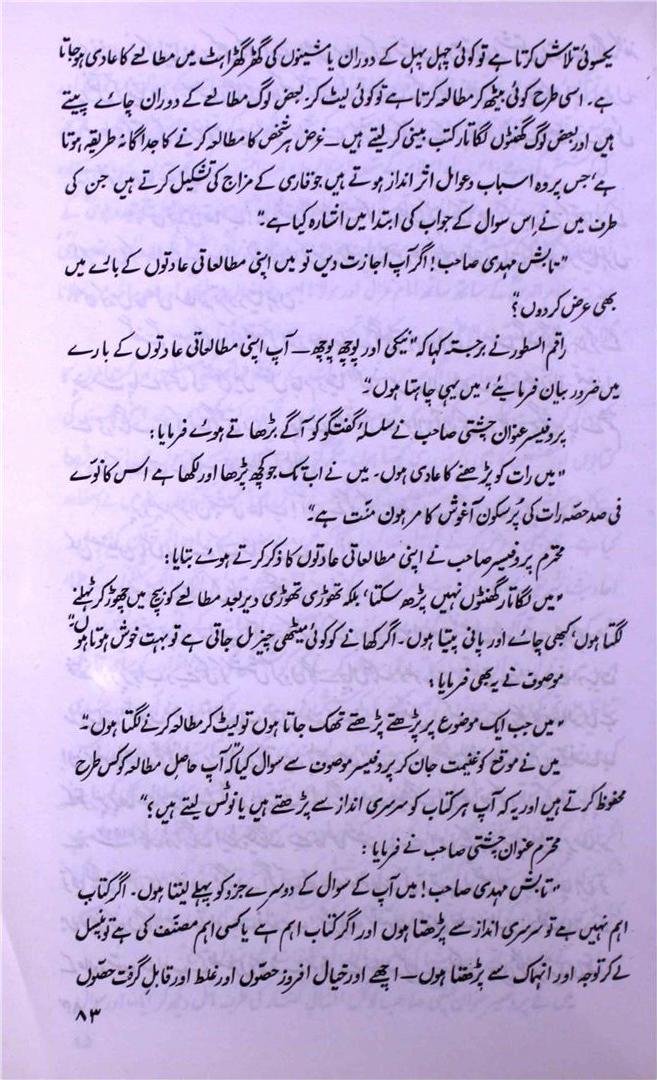 یکسوئی تلاش کرتا ہے تو کوئی چہل پہل کے دوران یا مشینوں کی گھڑ گھڑاہٹ میں مطالعے کا عادی ہو جاتا
ہے۔ اسی طرح کوئی بیٹھ کر مطالعہ کرتا ہے تو کوئی لیٹ کر، بعض لوگ مطالعے کے دوران چائے پیتے
ہیں اور بعض لوگ گھنٹوں لگاتار کتب بینی کر لیتے ہیں — غرض ہر شخص کا مطالعہ کرنے کا جداگانہ طریقہ ہوتا
ہے، جس پر وہ اسباب و عوامل اثر انداز ہوتے ہیں جو قاری کے مزاج کی تشکیل کرتے ہیں جن کی
طرف میں نے اس سوال کے جواب کی ابتدا میں اشارہ کیا ہے۔"
"تابش مہدی صاحب! اگر آپ اجازت دیں تو میں اپنی مطالعاتی عادتوں کے بارے میں
بھی عرض کر دوں؟"
راقم السطور نے برجستہ کہا کہ "نیکی اور پوچھ پوچھ — آپ اپنی مطالعاتی عادتوں کے بارے
میں ضرور بیان فرمائیے، میں یہی چاہتا ہوں"۔
پروفیسر عنوان چشتی صاحب نے سلسلۂ گفتگو کو آگے بڑھاتے ہوئے فرمایا:
"میں رات کو پڑھنے کا عادی ہوں۔ میں نے اب تک جو کچھ پڑھا اور لکھا ہے اس کا نوّے
فی صد حصّہ رات کی پُر سکون آغوش کا مرہون منّت ہے"۔
محترم پروفیسر صاحب نے اپنی مطالعاتی عادتوں کا ذکر کرتے ہوئے بتایا:
"میں لگاتار گھنٹوں نہیں پڑھ سکتا، بلکہ تھوڑی تھوڑی دیر بعد مطالعے کو بیچ میں چھوڑ کر ٹہلنے
لگتا ہوں، کبھی چائے اور پانی پیتا ہوں۔ اگر کھانے کو کوئی میٹھی چیز مل جاتی ہے تو بہت خوش ہوتا ہوں"۔
موصوف نے یہ بھی فرمایا:
"میں جب ایک موضوع پر پڑھتے پڑھتے تھک جاتا ہوں تو لیٹ کر مطالعہ کرنے لگتا ہوں"۔
میں نے موقع کو غنیمت جان کر پروفیسر موصوف سے سوال کیا کہ "آپ حاصل مطالعہ کو کس طرح
محفوظ کرتے ہیں اور یہ کہ آپ ہر کتاب کو سرسری انداز سے پڑھتے ہیں یا نوٹس لیتے ہیں؟"
محترم عنوان چشتی صاحب نے فرمایا:
"تابش مہدی صاحب! میں آپ کے سوال کے دوسرے جزو کو پہلے لیتا ہوں۔ اگر کتاب
اہم نہیں ہے تو سرسری انداز سے پڑھتا ہوں اور اگر کتاب اہم ہے یا کسی اہم مصنّف کی ہے تو پنسل
لے کر توجہ اور انہماک سے پڑھتا ہوں — اچھے اور خیال افروز حصّوں اور غلط اور قابلِ گرفت حصّوں
۸۳